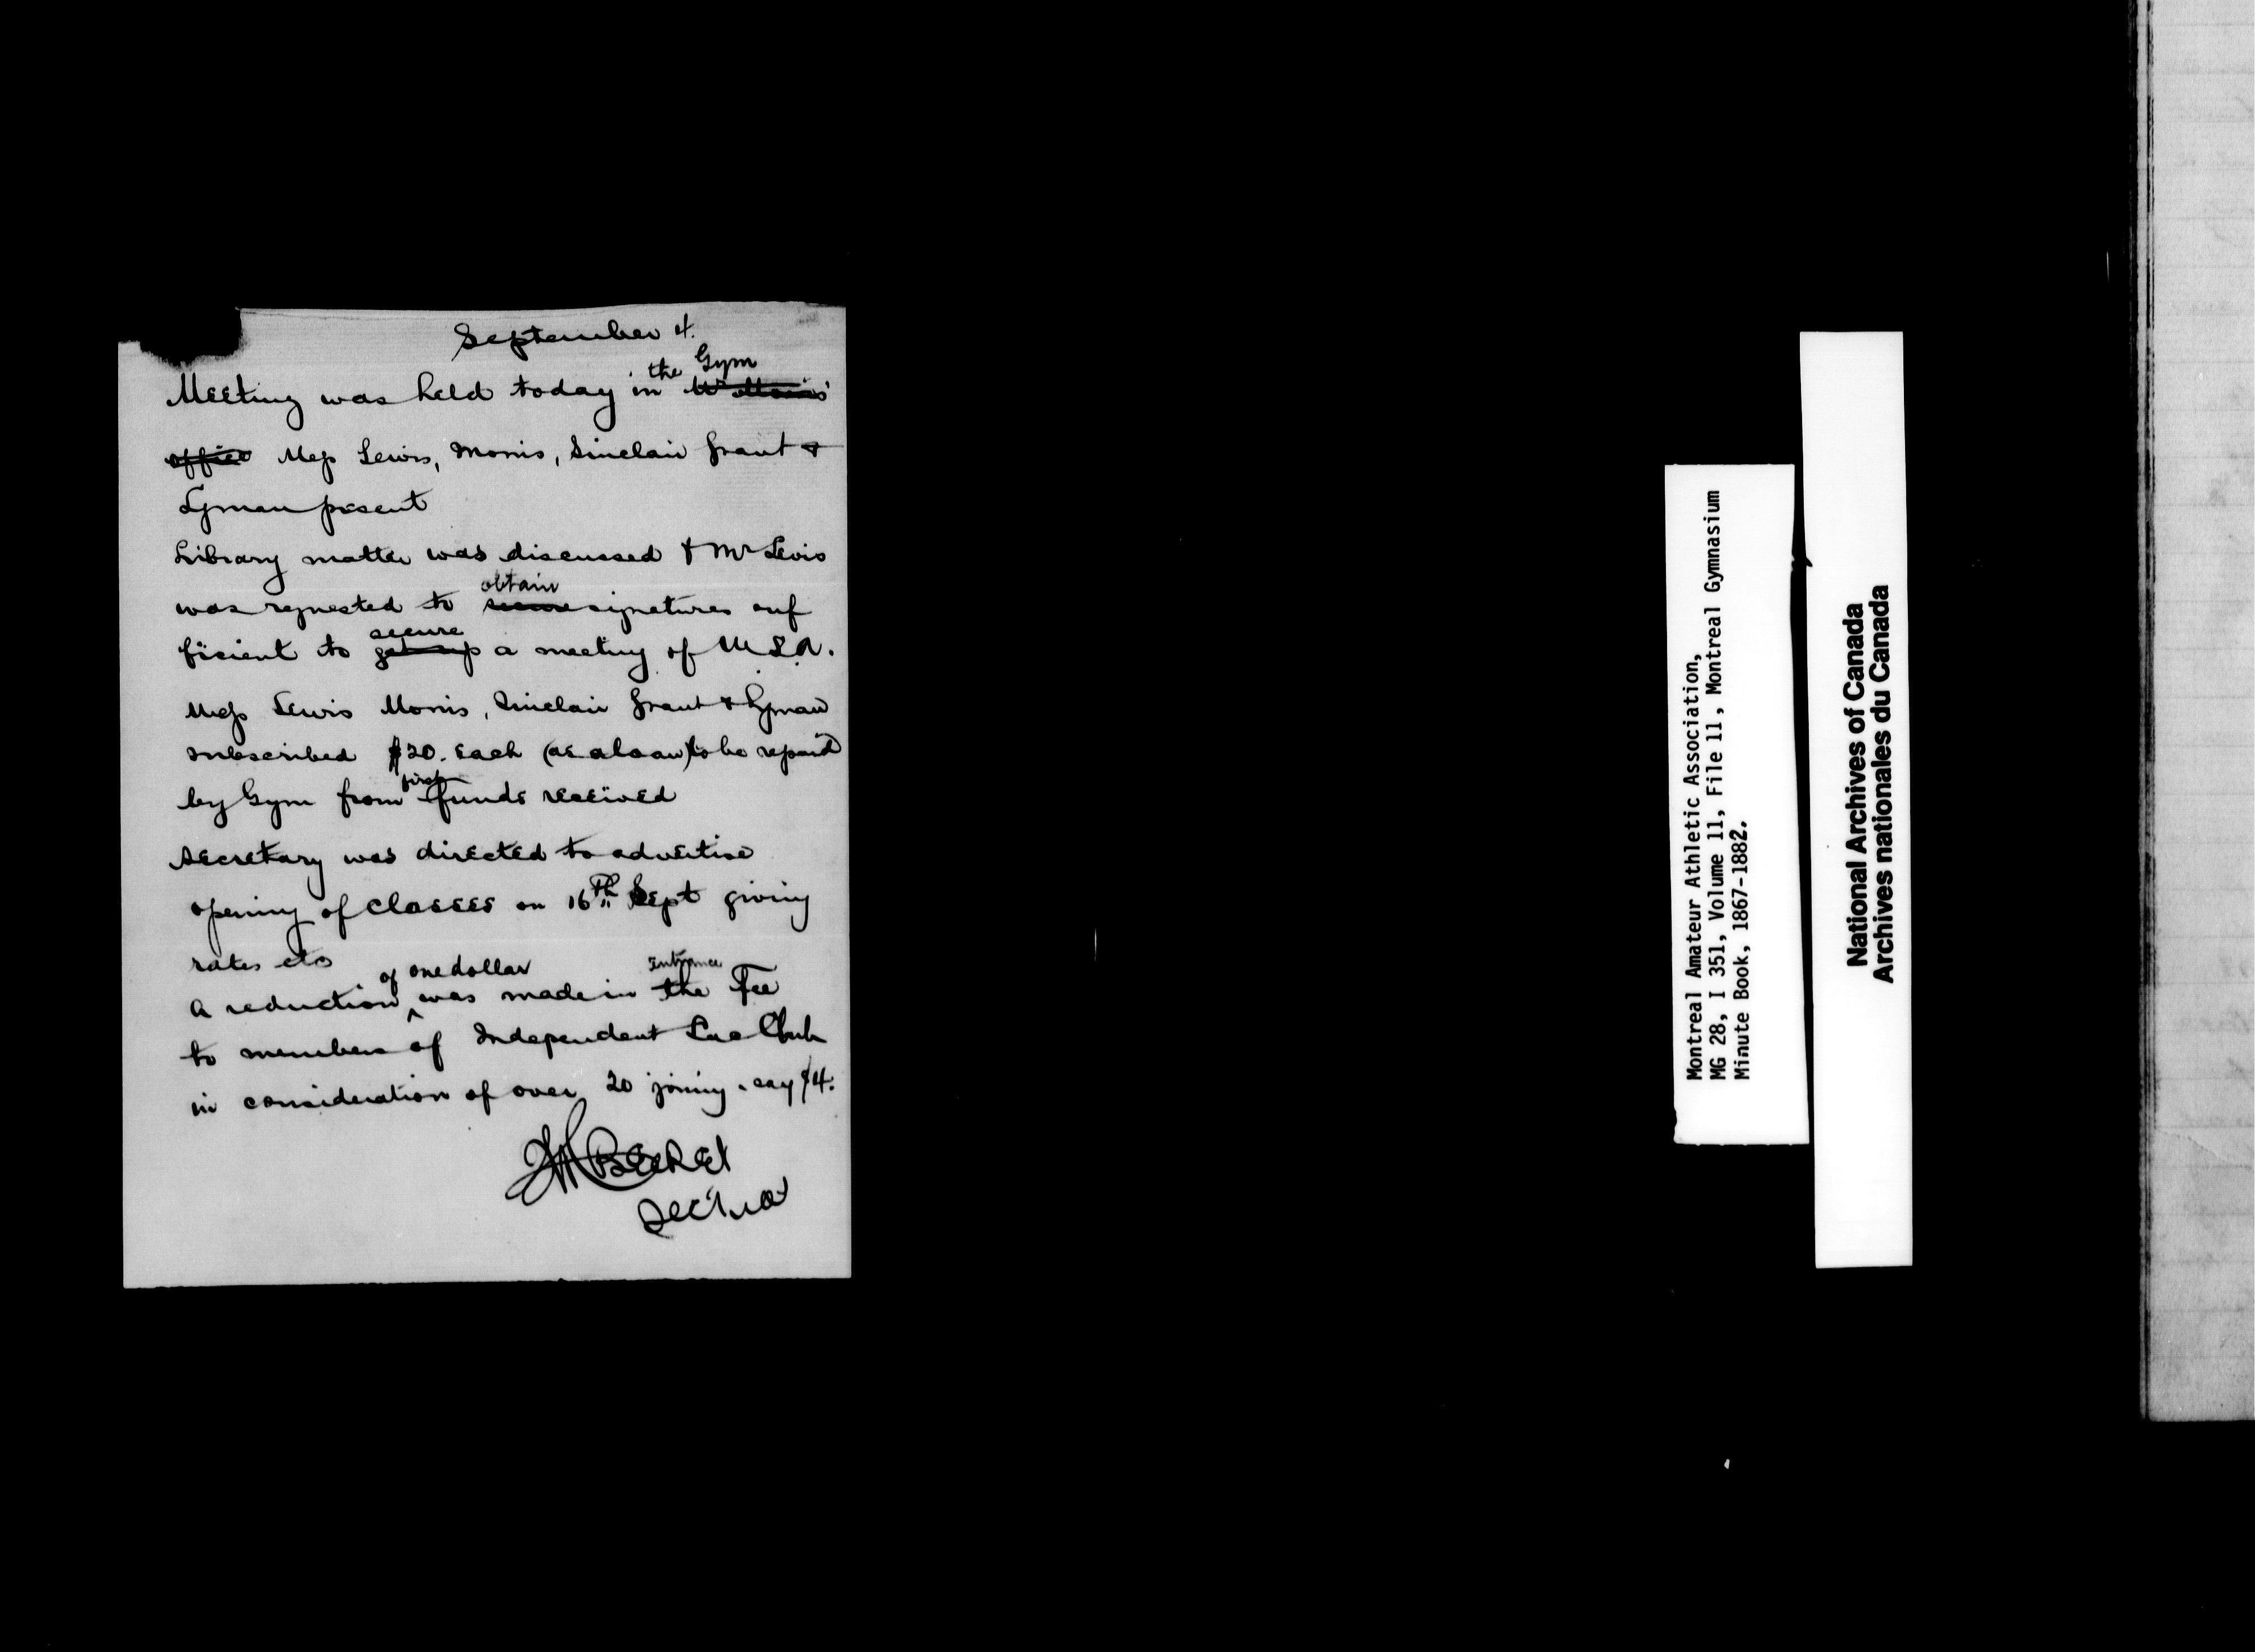 September 4.
Meeting was held today in the Gym Mr Morris'
office Mess Lewis, Morris, Sinclair Grant &
Lyman present
Library matter was discussed & Mr Lewis
was requested to obtain secure signatures suf
ficient to secure get up a meeting of M.L.A.
Mess Lewis Morris, Sinclair Grant & Lyman
subscribed $20. each (as a loan) to be repaid
by Gym from first funds received
Secretary was directed to advertise
opening of classes on 16th Sept giving
rates etc
A reduction of one dollar was made in the Entrance Fee
to members of Independent Lac Club
in consideration of over 20 joining - say $4.
Sect
Montreal Amateur Athletic Association,
MG 28, I 351, Volume 11, File 11, Montreal Gymnasium
Minute Book, 1867-1882.
National Archives of Canada
Archives nationales du Canada